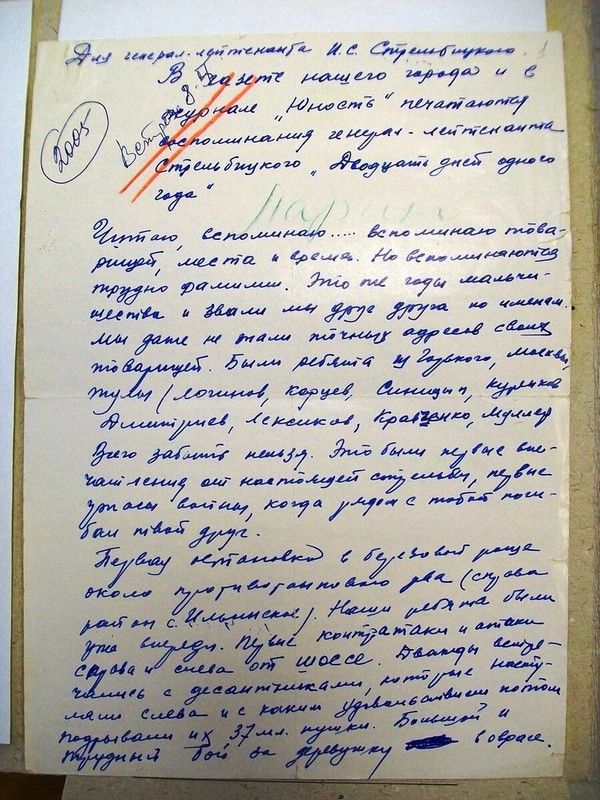 Для генерал-лейтенанта И.С. Стрельбицкого.
В газете нашего города и в
журнале „Юность" печатаются
воспоминания генерал-лейтенанта
Стрельбицкого „Двадцать дней одного
года"
2005
Ларин
Читаю, вспоминаю..... вспоминаю това-
рищей, места и время. Но вспоминаются
трудно фамилии. Это же годы мальчи-
шества и звали мы друг друга по именам.
Мы даже не знали точных адресов своих
товарищей. Были ребята из Горького, Москвы,
Тулы (Логинов, Карцев, Синицын, Куликов
Дмитриев, Лексиков, Кравченко, Муллер
Всего забыть нельзя. Это были первые впе-
чатления от настоящей стрельбы, первые
ужасы войны, когда рядом с тобой поги-
бал твой друг.
Первая остановка в березовой роще
около противотанкового рва (справа
район с. Ильинское). Наши ребята были
уже впереди. Первые контратаки и атаки
справа и слева от шоссе. Дважды встре-
чались с десантниками, которые насту-
пали слева и с каким удовольствием потом
подрывали их 37 мл. пушки. Большой и
трудный бой за деревушку в овраге.